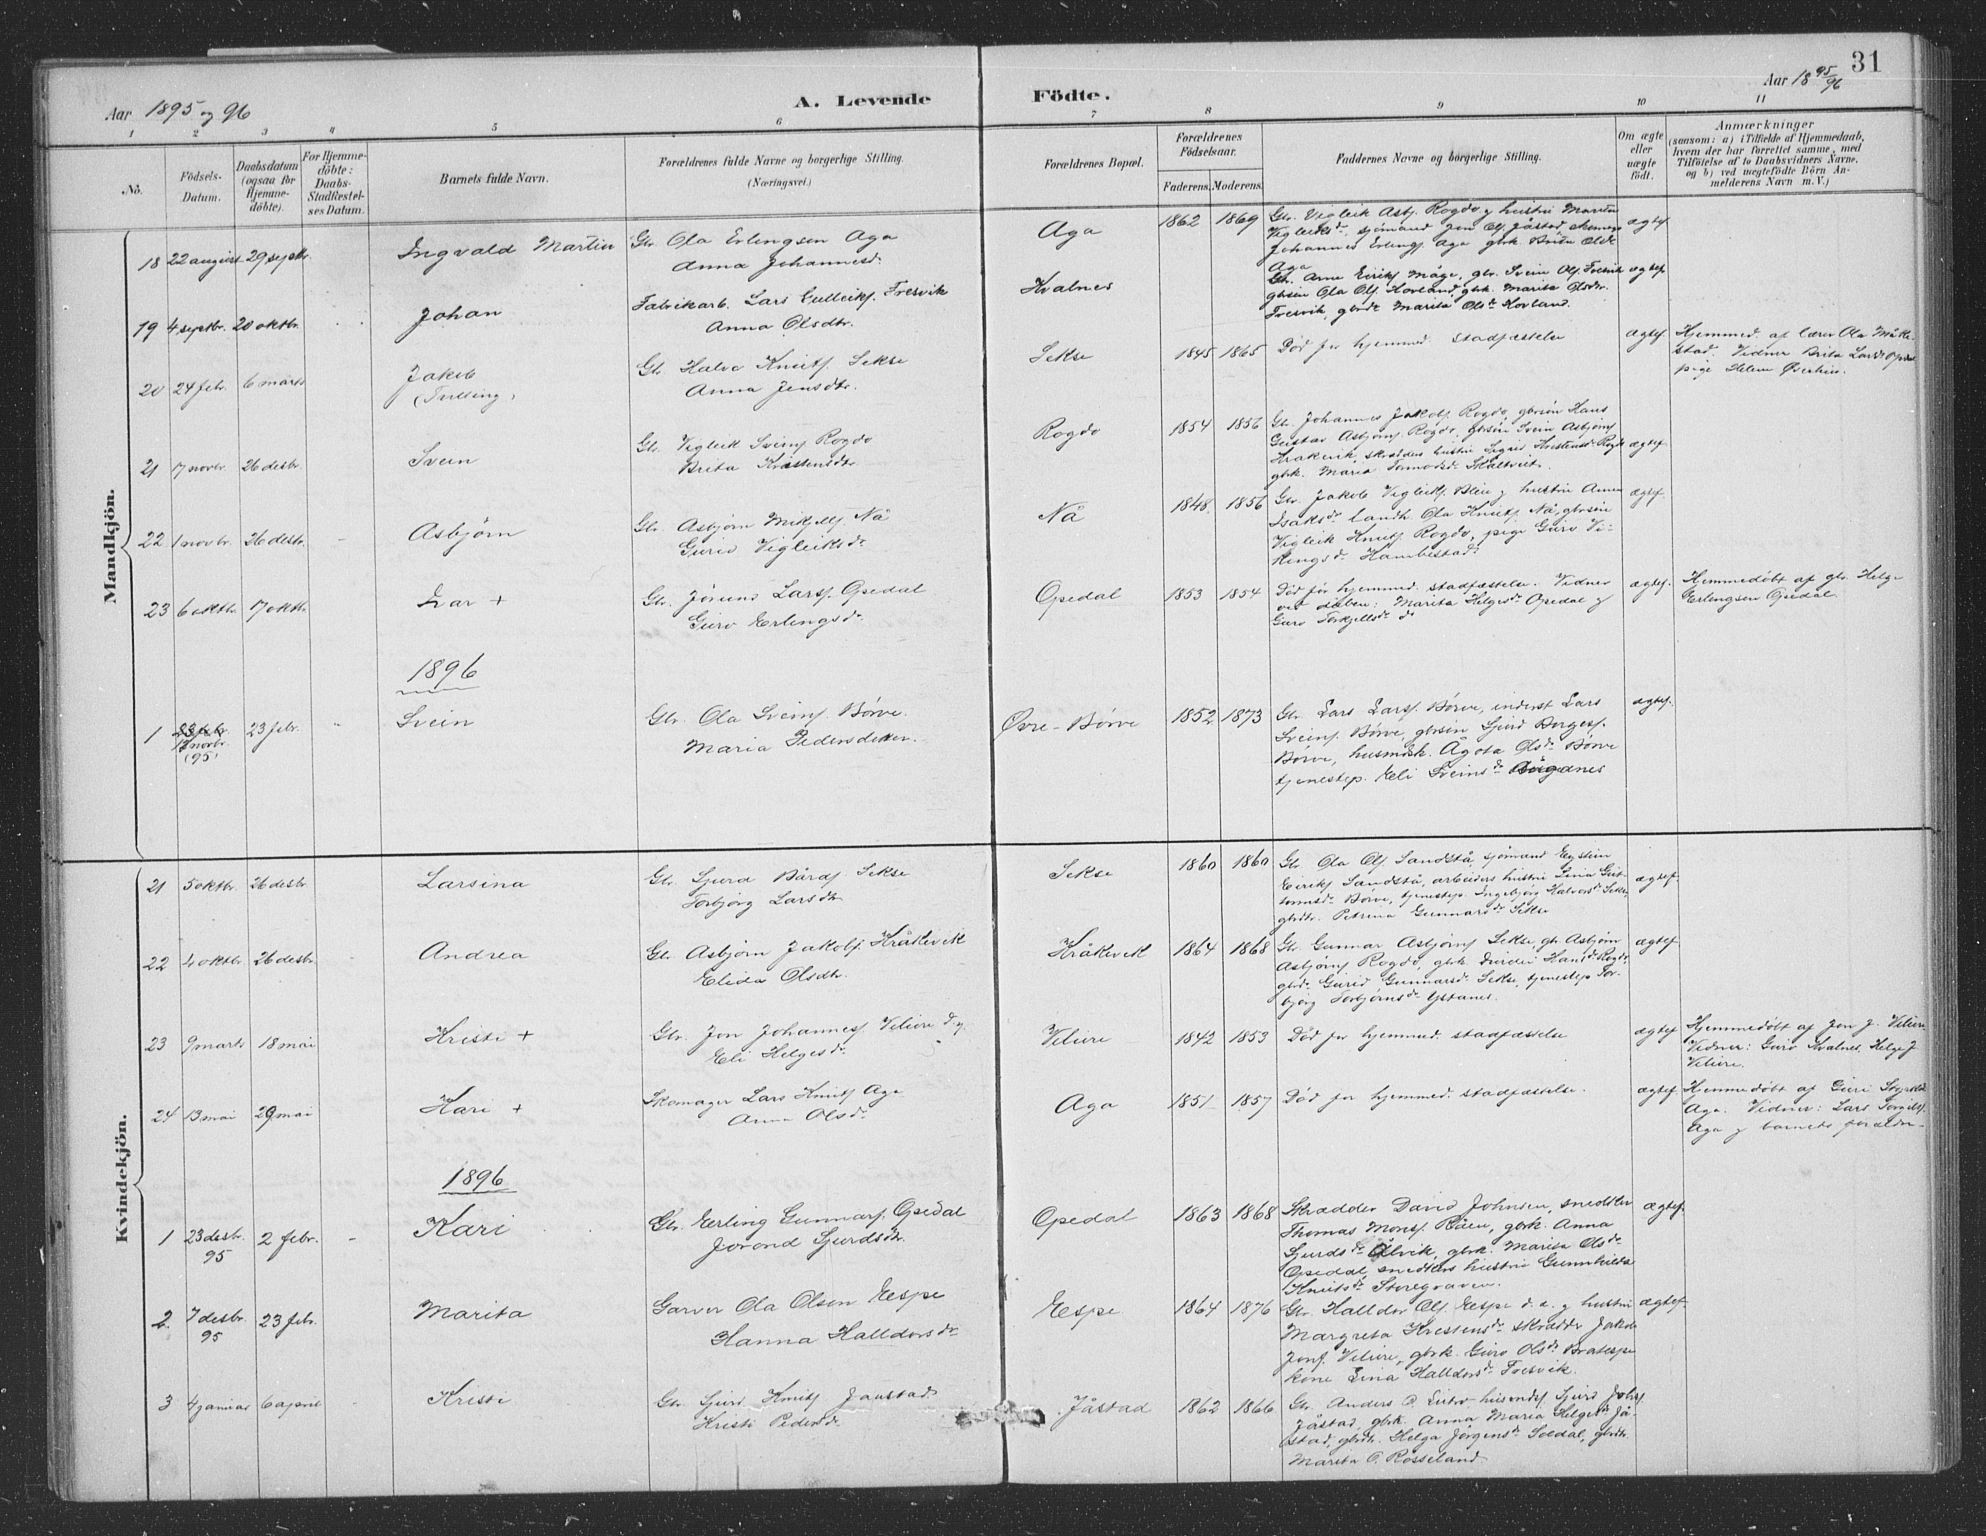 31
Aar 1895 og 96
A. Levende Fødte.
Aar 1895/96
1 2 3 4 5 6 7 8 9 10 11
No.
Fødsels-Datum.
Daabsdatum (ogsaa for Hjemmedøbte).
For Hjemmedøbte: Daabs-Stadfæstelses Datum.
Barnets fulde Navn.
Forældrenes fulde Navne og borgerlige Stilling. (Næringsvei.)
Forældrenes Bopæl.
Forældrenes Fødselsaar.
Faderens. Moderens.
Faddernes Navne og borgerlige Stilling.
Om ægte eller uægte født.
Anmærkninger
(saasom: a) i Tilfælde af Hjemmedaab,
hvem der har forrettet samme, med
Tilføielse af to Daabsvidners Navne.
og b) ved uægtefødte Børn Anmelderens Navn m. V.)
Mandkjøn.
18 22 august 29 septbr. Ingvald Martin Gbr. Ola Erlingsen Aga
Anna Johannesdr. Aga 1862 1869 Gbr. Vigleik Asbj. Rogdo og hustru Marita
Vigleiksdr., sjømand Jon Ols. Jåstad,
Johannes Erlings. Aga gbrk. Brita Olsdr.
Aga ægtef.
19 4 septbr. 20 oktbr. Johan Fabrikarb. Lars Gulleiks. Tresvik
Anna Olsdtr. Kvalnes Gbr. Arne Eiriks. Måge, gbr. Svein Ols. Tresvik
gbrsøn Ola Ols. Hovland, gbrk. Marita Olsdr.
Tresvik, gbrd. Marita Olsdr. Hovland. ægtef.
20 24 febr. 6 marts Jakob
(Tvilling) Gbr. Halvo Knuts. Sekse
Anna Jensdtr. Sekse 1845 1865 Død før hjemmed. stadfæstelse ægtef. Hjemmed. af lærer Ola Måkestad. Vidner Brita Larsdr
pige Helene
21 17 novbr. 26 desbr. Svein Gbr. Vigleik Sveins. Rogdo
Brita Kristensdtr. Rogdo 1854 1856 Gbr. Johannes Jakobs. Rogdo, gbrsøn Hans
Gustav Asbjørns. Rogdo, gbrsøn Svein Asbjørns.
Kråkevik, skrædders hustru Sigrid Kristensdr. Rogdo
gbrk. Maria Tormodsdr. Skåltveit. ægtef.
22 1 novbr. 26 desbr. Asbjørn Gbr. Asbjørn Mikjells. Nå
Gurid Vigleiksdr. Nå 1848 1856 Gbr. Jakob Vigleiks. Bleie og hustru Anna
Isaksdr. landh. Ola Knuts. Nå, gbrsøn
Vigleik Knuts. Rogdo, pige Guro Vikingsdr. Hambestad. ægtef.
23 6 oktbr. 7 oktbr. Ivar + Gbr. Jørund Lars. Opedal
Guro Erlingsdr. Opedal 1853 1854 Død før hjemmed. stadfæstelse. Vidner
ved dåben: Marita Helgesdr. Opedal og
Guro Torkjellsdr. do ægtef. Hjemmedøbt af gbr. Helge
Erlingsen Opedal.
1896
1 13 novbr. (95) 23 febr. Svein Gbr. Ola Sveins. Børve.
Maria Pedersdatter. Øvre-Børve 1852 1873 Gbr. Lars Lars. Børve, inderst Lars
Sveins. Børve, gbrsøn Sjurd Borges.
Børve, husmdsk. Ågota Olsdr. Børve
tjenestep. Eli Sveinsdr. ægtef.
Kvindekjøn.
21 5 oktbr. 26 desbr. Larsina Gbr. Sjurd Bårds. Sekse
Torbjørg Larsdtr. Sekse 1860 1860 Gbr. Ola Ols. Sandstå, sjømand Eystein
Eiriks. Sandstå, arbeiders hustru Lina Guttormsdr. Børve, tjenestep. Ingebjørg Halvorsdr. Sekse,
gbrdtr. Petrina Gunnarsdr. Sekse ægtef.
22 4 oktbr. 26 desbr. Andrea Gbr. Asbjørn Jakobs. Kråkevik
Elida Olsdtr. Kråkevik 1864 1868 Gbr. Gunnar Asbjørns. Sekse, gbr. Asbjørn
Asbjørns. Rogdo, gbrk. Hansdr. Rogdo
gbrd. Gurid Gunnarsdr. Sekse, tjenestep. Torbjørg Torbjørnsdr. Ystanes. ægtef.
23 9 marts 18 mai Kristi + Gbr. Jon Johannes. Vilure d.y.
Eli Helgesdr. Vilure 1842 1853 Død før hjemmed. stadfæstelse ægtef. Hjemmedøbt af Jon J. Vilure,
Vidner: Guro Kvalnes. Helge J
Vilure.
24 13 mai 29 mai Kari + Skomager Lars Knuts. Aga
Anna Olsdr. Aga 1851 1857 Død før hjemmed. stadfæstelse. ægtef. Hjemmedøbt af Guri
Aga. Vidner: Lars Torgils.
Aga og barnets forældre
1896
1 23 desbr. 95 2 febr. Kari Gbr. Erling Gunnars. Opedal
Jorond Sjurdsdtr. Opedal 1863 1868 Skrædder David Johnsen, snedker
Thomas Mons. Røen, gbrk. Anna
Sjurdsdr. Ålvik, gbrk. Marita Olsdr.
Opedal, snedkers hustru Gunnhilda
Knutsdr. Storegraven. ægtef.
2. 7 desbr. 95 23 febr. Marita Garver Ola Olsen Espe
Hanna Halldorsdr. Espe 1864 1876 Gbr. Halldor Ols. Espe d.e. og hustru
Margreta Kristensdr. skrædder Jakob
Jons. Vilure, gbrk. Guro Olsdr. Bratespe
kone Lina Halldorsdr. Tresvik. ægtef.
3 4 januar 6 april Kristi Gbr. Sjurd Knuts. Jaastad
Kristi Pedersdr. Jåstad 1862 1866 Gbr. Anders husmds. Sjurd Johs.
Jåstad, gbrk. Anna Maria Helgesdr. Jåstad, gbrdtr. Helga Jørgensdr. Soldal, gbrdtr.
Marita O. Røsseland.